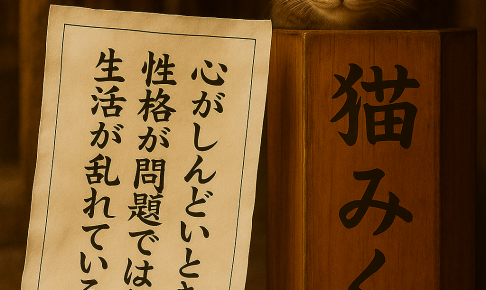 猫みく
心がしんどいとき
性格が問題では
生活が乱れている